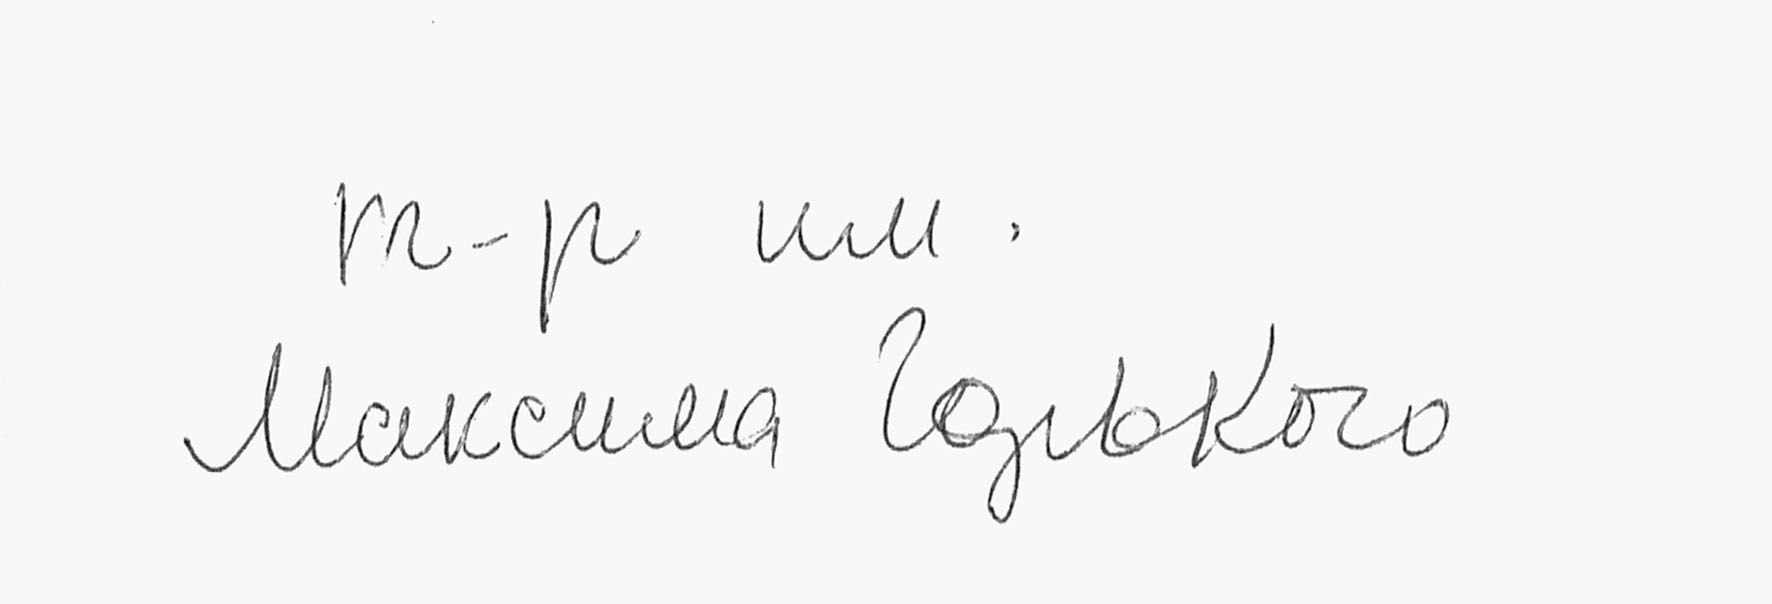 т-р им.
Максима Горького